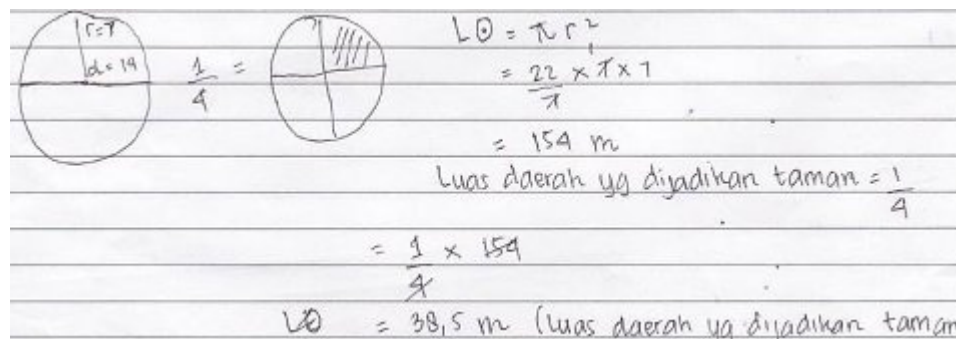 r=7
d=14
1/4 =
L⊙ = π r²
= 22/7 × 7 × 7
= 154 m
Luas daerah yg dijadikan taman = 1/4
= 1/4 × 154
L⊙ = 38,5 m (luas daerah yg dijadikan taman